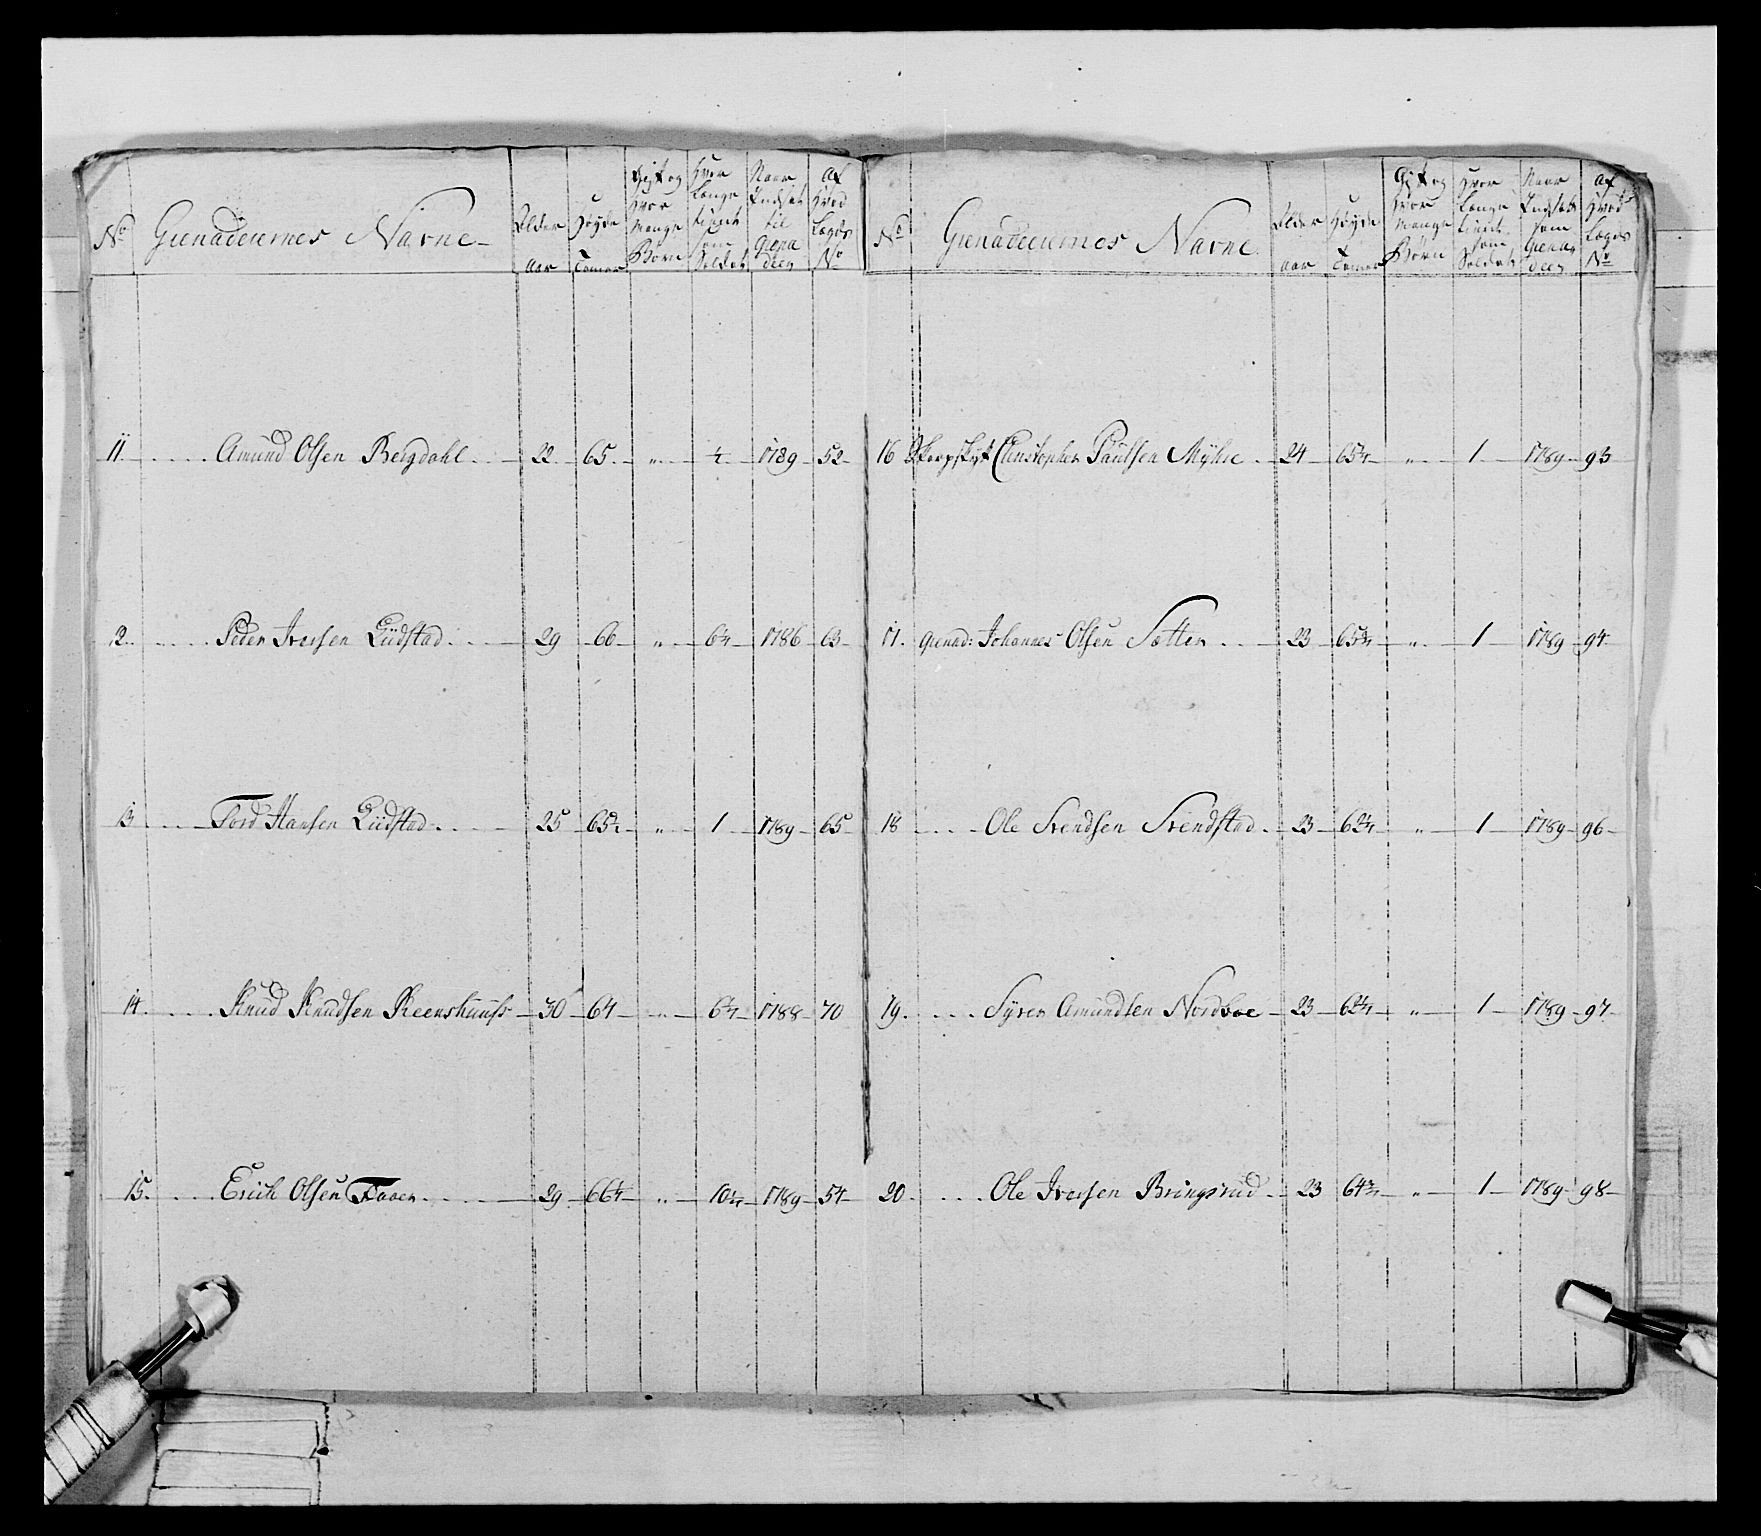 No
Grenadeernes Navne
Alder
aar
Høyde
Tomer
Gift og
Hvor
Mange
Børn
Hvor
Længe
tiennt
som
Soldat
Naar
Indsat
til
Grena
deer
Af
Hvad
Lægds
No
11. Amund Olsen Bergdahl 22 65 " 1789 52
12. Peder Iversen Liidstad 29 66 " 1786 63
13 Tord Hansen Liidstad 25 " 1 1789 65
14. Knud Knudsen 30 64 " 1788 70
15. Erich Olsen 29 " 1789 54
No
Grenadeernes Navne
Alder
aar
Høyde
Tomer
Gift og
Hvor
Mange
Børn
Hvor
Længe
tiennt
som
Soldat
Naar
Indsat
som
Grena
deer
Af
Hvad
Lægds
No
16 Skarpskyt Christopher Paulsen Myhre 24 " 1 1789 93
17. Grenad: Johannes Olsen Sætter 23 " 1 1789 94
18 Ole Svendsen Svendstad 23 " 1 1789 96
19. Syver Amundsen Nordboe 23 " 1 1789 97
20. Ole Iversen Bringsrud 23 " 1 1789 98